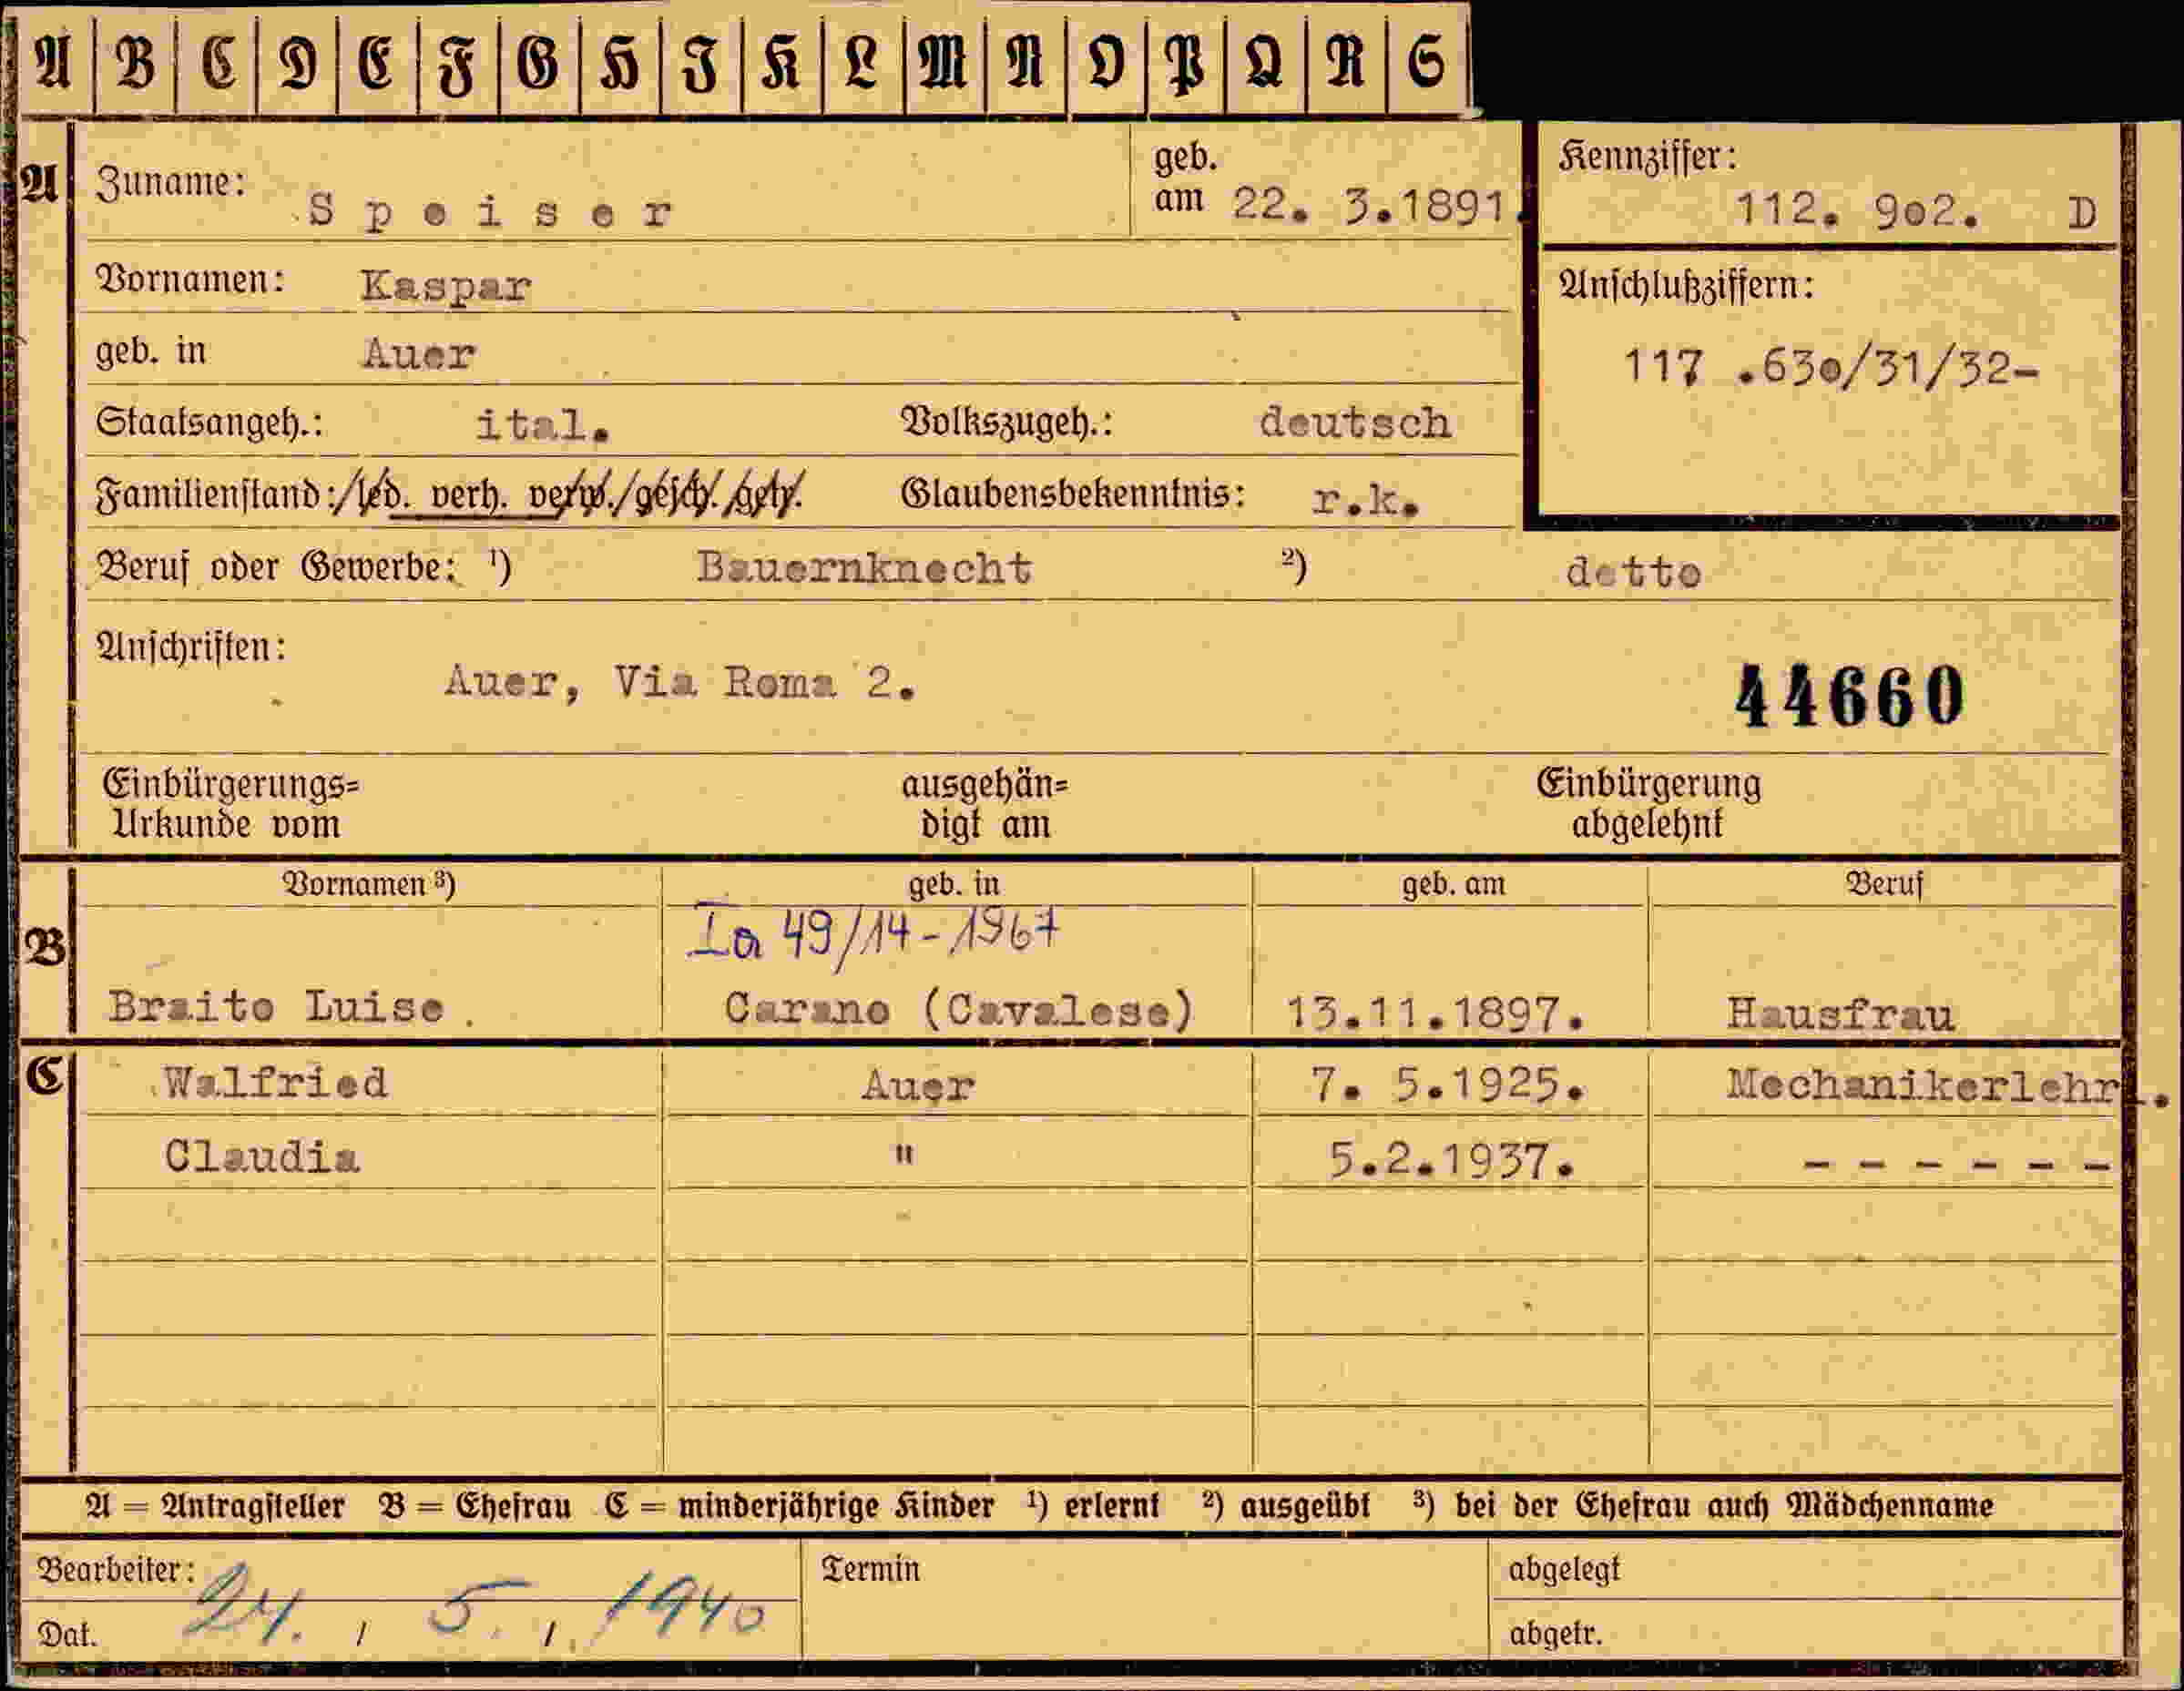 A B C D E F G H I K L M N O P Q R S
A Zuname: Speiser geb. am 22. 3.1891. Kennziffer: 112. 9o2. D
Vornamen: Kaspar
Anschlußziffern:
geb. in Auer
117 .63o/31/32-
Staatsangeh.: ital. Volkszugeh.: deutsch
Familienstand: led. verh. verw. gesch. getr. Glaubensbekenntnis: r.k.
Beruf oder Gewerbe: ¹) Bauernknecht ²) detto
Anschriften:
Auer, Via Roma 2.
44660
Einbürgerungs= ausgehän= Einbürgerung
Urkunde vom digt am abgelehnt
Vornamen ³) geb. in geb. am Beruf
B
Ia 49/14-1967
Braito Luise . Carano (Cavalese) 13.11.1897. Hausfrau
C Walfried Auer 7. 5.1925. Mechanikerlehrl.
Claudia " 5.2.1937. - - - - - -
A = Antragsteller B = Ehefrau C = minderjährige Kinder ¹) erlernt ²) ausgeübt ³) bei der Ehefrau auch Mädchenname
Bearbeiter: Termin abgelegt
Dat. 24. / 5. / 1940 abgetr.